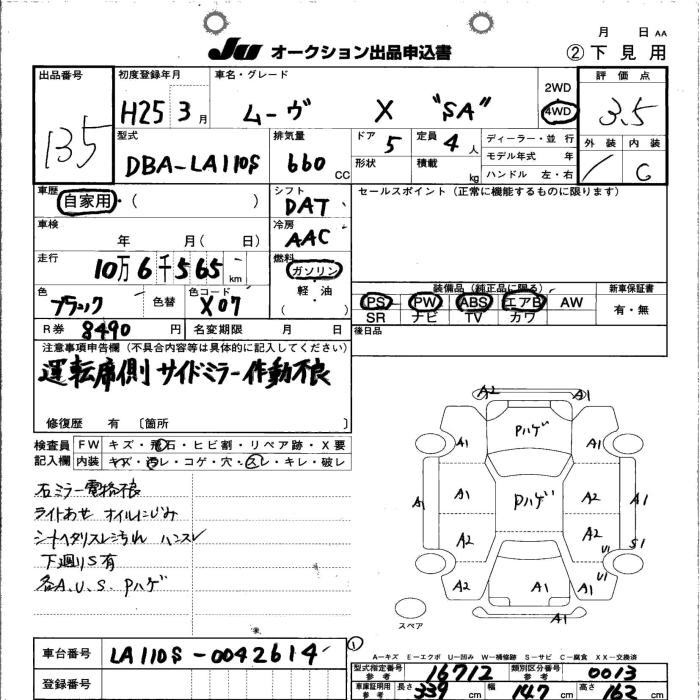 月 日 AA
JU オークション出品申込書 ②下見用
出品番号 初度登録年月 車名・グレード 2WD 評価点
135 H25 3月 ムーヴ X "SA" 4WD 3.5
型式 排気量 ドア 定員 ディーラー・並行 外装 内装
DBA-LA110S 660 CC 5 4人 モデル年式 年 / C
形状 積載 kg ハンドル 左・右
車歴 シフト セールスポイント(正常に機能するものに限ります)
自家用・( ) DAT
車検 冷房
年 月( 日) AAC
走行 燃料
10万6千565km ガソリン
色 色コード 軽・油 装備品(純正品に限る) 新車保証書
ブラック 色替 X07 ( ) PS PW ABS エアB AW 有・無
SR ナビ TV カワ
R券 8490円 名変期限 月 日 後日品
注意事項申告欄(不具合内容等は具体的に記入してください)
運転席側 サイドミラー作動不良
修復歴 有 〔箇所 〕
検査員 FW キズ・飛石・ヒビ割・リペア跡・X要
記入欄 内装 キズ・汚レ・コゲ・穴・スレ・キレ・破レ
右ミラー電格不良
ライトあせ オイルにじみ
シートヘタリスレこうれ ハンスレ
下廻りS有
各A.U.S. Pハゲ
A2 A1
Pハゲ
A1 A1
A1 A1 Pハゲ A2 A1
A2 A2 S1
U1
A2 A1 A1 U1
A1
スペア
A-キズ E-エクボ U-凹み W-補修跡 S-サビ C-腐食 XX-交換済
車台番号 LA110S-0042614 ①
型式指定番号 参考 16712 類別区分番号 参考 0013
登録番号 車庫証明用 参考 長さ 339 cm 幅 147 cm 高さ 162 cm